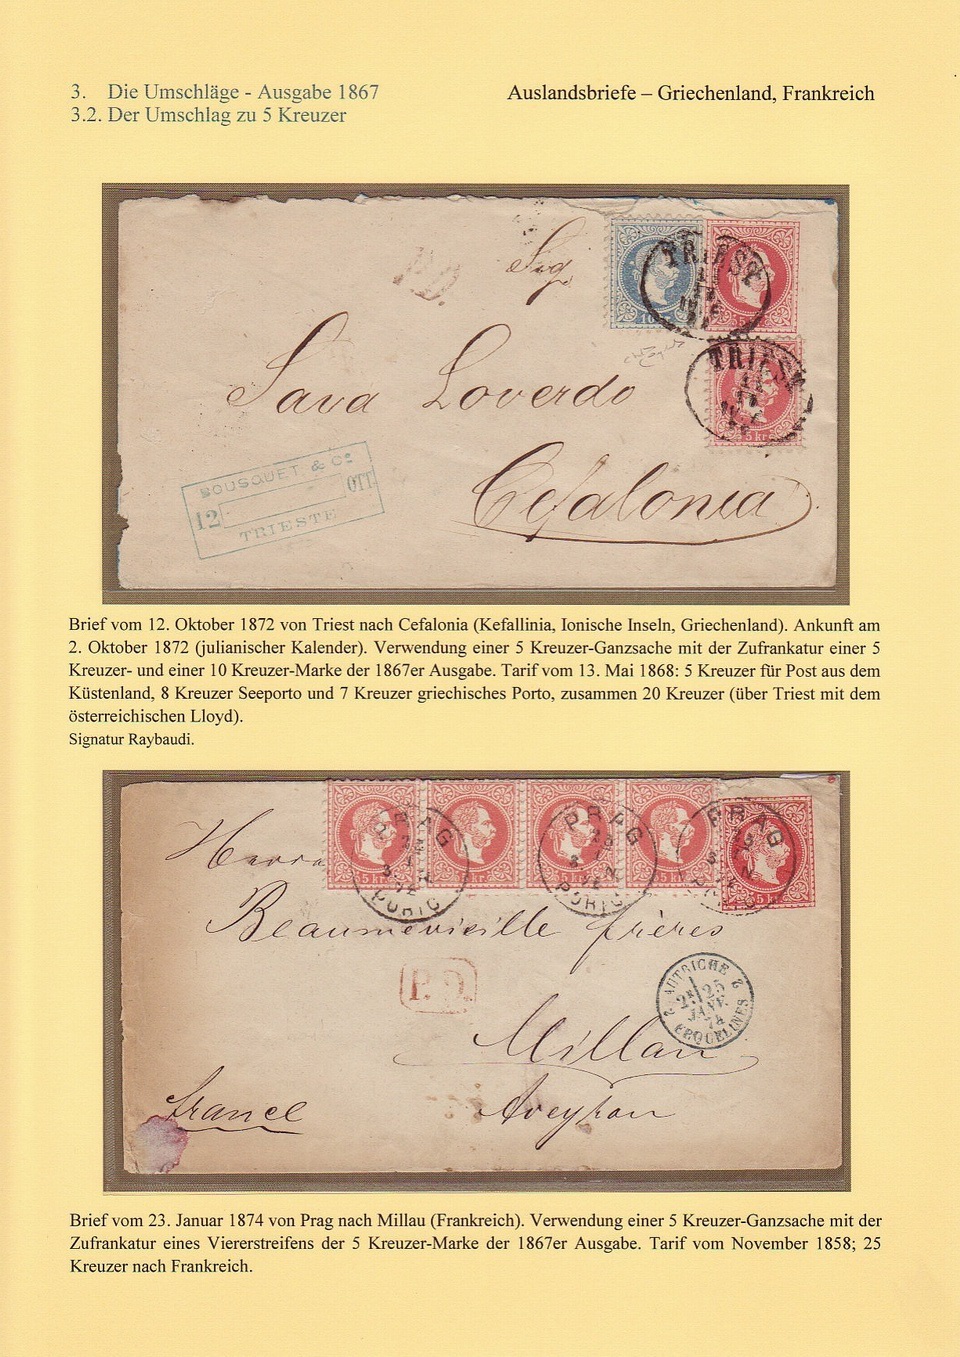 3. Die Umschläge - Ausgabe 1867
3.2. Der Umschlag zu 5 Kreuzer
Auslandsbriefe – Griechenland, Frankreich
Sig.
TRIEST
10
5
TRIEST
5 kr.
Sava Loverdo
Cefalonia
BOUSQUET & Co.
12 OTT
TRIESTE
Brief vom 12. Oktober 1872 von Triest nach Cefalonia (Kefallinia, Ionische Inseln, Griechenland). Ankunft am
2. Oktober 1872 (julianischer Kalender). Verwendung einer 5 Kreuzer-Ganzsache mit der Zufrankatur einer 5
Kreuzer- und einer 10 Kreuzer-Marke der 1867er Ausgabe. Tarif vom 13. Mai 1868: 5 Kreuzer für Post aus dem
Küstenland, 8 Kreuzer Seeporto und 7 Kreuzer griechisches Porto, zusammen 20 Kreuzer (über Triest mit dem
österreichischen Lloyd).
Signatur Raybaudi.
PRAG
PORIC
PRAG
PORIC
PRAG
5 kr. 5 kr. 5 kr. 5 kr. 5 kr.
Herrn
Beaumevieille frères
P.D.
AUTRICHE
25 JANV. 74
ERQUELINES
Millau
Aveyron
France
Brief vom 23. Januar 1874 von Prag nach Millau (Frankreich). Verwendung einer 5 Kreuzer-Ganzsache mit der
Zufrankatur eines Viererstreifens der 5 Kreuzer-Marke der 1867er Ausgabe. Tarif vom November 1858; 25
Kreuzer nach Frankreich.